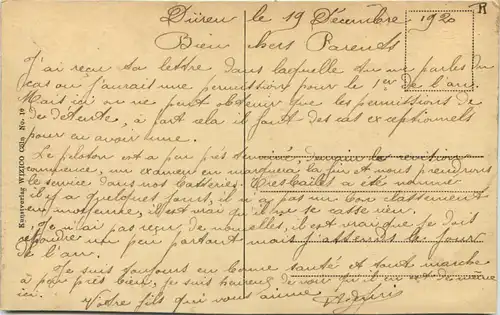 R
Düren le 19 Décembre 1920
Bien chers Parents
J'ai reçu ta lettre dans laquelle tu me parles du
cas où j'aurais une permission pour le 1er de l'an.
Mais ici on ne peut obtenir que les permissions de
de détente, à part cela il faut des cas exceptionnels
pour en avoir une.
Le peloton est a peu près terminé, demain la révision
commence, un examen en marquera la fin et nous prendrons
le service dans nos batteries. Tresbaillet a été nommé
il y a quelques jours, il n'y a pas un bon classement
en moyenne, il est vrai qu'il ne se casse rien.
Je n'ai pas reçu de nouvelles, il est vrai que je dois
répondre un peu partout mais j'attends le jour
de l'an.
Je suis toujours en bonne santé et tout marche
à peu près bien, je suis heureux de voir qu'il en est de même
ici.
Votre fils qui vous aime
Kunstverlag WIZICO Cöln No. 19